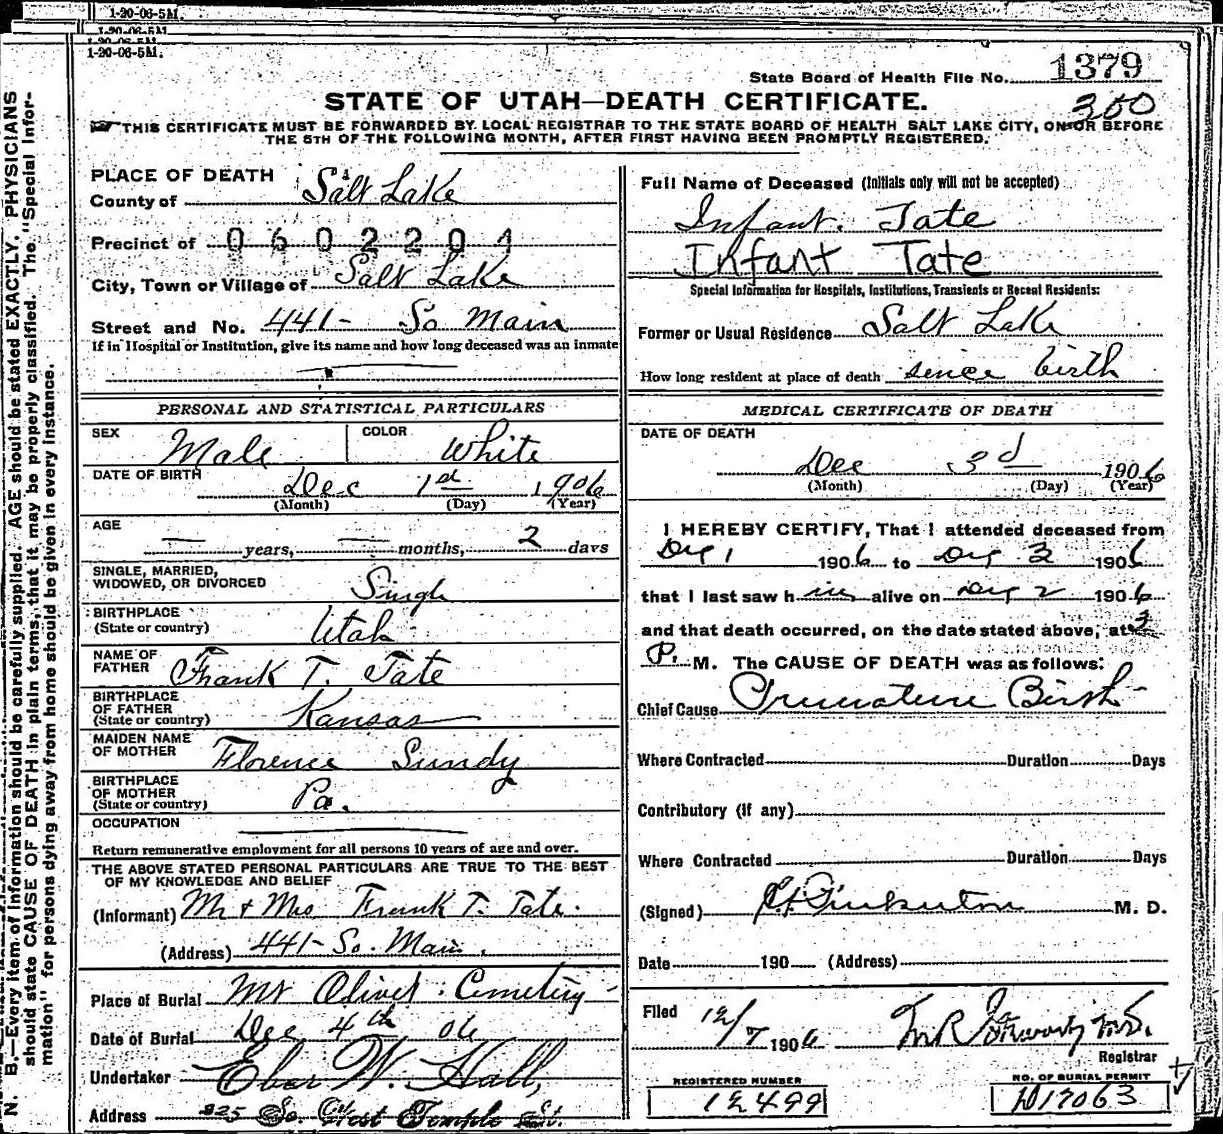 1-20-06-5M.
1-20-06-5M
1-20-06-5M
1-20-06-5M.
State Board of Health File No. 1379
350
STATE OF UTAH—DEATH CERTIFICATE.
THIS CERTIFICATE MUST BE FORWARDED BY LOCAL REGISTRAR TO THE STATE BOARD OF HEALTH SALT LAKE CITY, ON OR BEFORE
THE 5TH OF THE FOLLOWING MONTH, AFTER FIRST HAVING BEEN PROMPTLY REGISTERED.
PLACE OF DEATH
County of Salt Lake
Precinct of 0602201
City, Town or Village of Salt Lake
Street and No. 441- So Main
If in Hospital or Institution, give its name and how long deceased was an inmate
PERSONAL AND STATISTICAL PARTICULARS
SEX Male COLOR White
DATE OF BIRTH Dec 1st 1906
(Month) (Day) (Year)
AGE
years, months, 2 days
SINGLE, MARRIED,
WIDOWED, OR DIVORCED Single
BIRTHPLACE
(State or country) Utah
NAME OF
FATHER Frank T. Tate
BIRTHPLACE
OF FATHER
(State or country) Kansas
MAIDEN NAME
OF MOTHER Florence Sundy
BIRTHPLACE
OF MOTHER
(State or country) Pa.
OCCUPATION
Return remunerative employment for all persons 10 years of age and over.
THE ABOVE STATED PERSONAL PARTICULARS ARE TRUE TO THE BEST
OF MY KNOWLEDGE AND BELIEF
(Informant) Mr + Mrs Frank T. Tate.
(Address) 441- So. Main.
Place of Burial Mt Olivet Cemetery
Date of Burial Dec 4th 06
Undertaker Eber W. Hall,
Address 225 So. West Temple St.
Full Name of Deceased (Initials only will not be accepted)
Infant. Tate
Infant Tate
Special Information for Hospitals, Institutions, Transients or Recent Residents:
Former or Usual Residence Salt Lake
How long resident at place of death since birth
MEDICAL CERTIFICATE OF DEATH
DATE OF DEATH
Dec 3d 1906
(Month) (Day) (Year)
I HEREBY CERTIFY, That I attended deceased from
Dec 1 1906 to Dec 3 1906
that I last saw him alive on Dec 2 1906
and that death occurred, on the date stated above, at 3
P. M. The CAUSE OF DEATH was as follows:
Chief Cause Premature Birth
Where Contracted Duration Days
Contributory (if any)
Where Contracted Duration Days
(Signed) Pinkerton M. D.
Date 190 (Address)
Filed 12/7 1906
Registrar
REGISTERED NUMBER
12499
NO. OF BURIAL PERMIT
D17063
N. B.—Every item of information should be carefully supplied. AGE should be stated EXACTLY. PHYSICIANS
should state CAUSE OF DEATH in plain terms, that it may be properly classified. The "Special Infor-
mation" for persons dying away from home should be given in every instance.